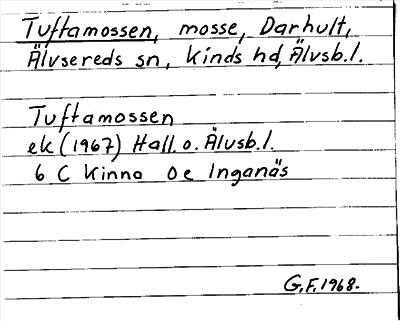 Tuftamossen, mosse, Darhult,
Älvsereds sn, Kinds hd, Älvsb.l.
Tuftamossen
ek (1967) Hall. o. Älvsb.l.
6 C Kinna 0e Inganäs
G.F. 1968.